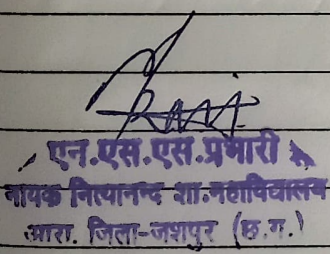 एन.एस.एस.प्रभारी
नायक नित्यानन्द शा.महाविद्यालय
आरा. जिला-जशपुर (छ.ग.)